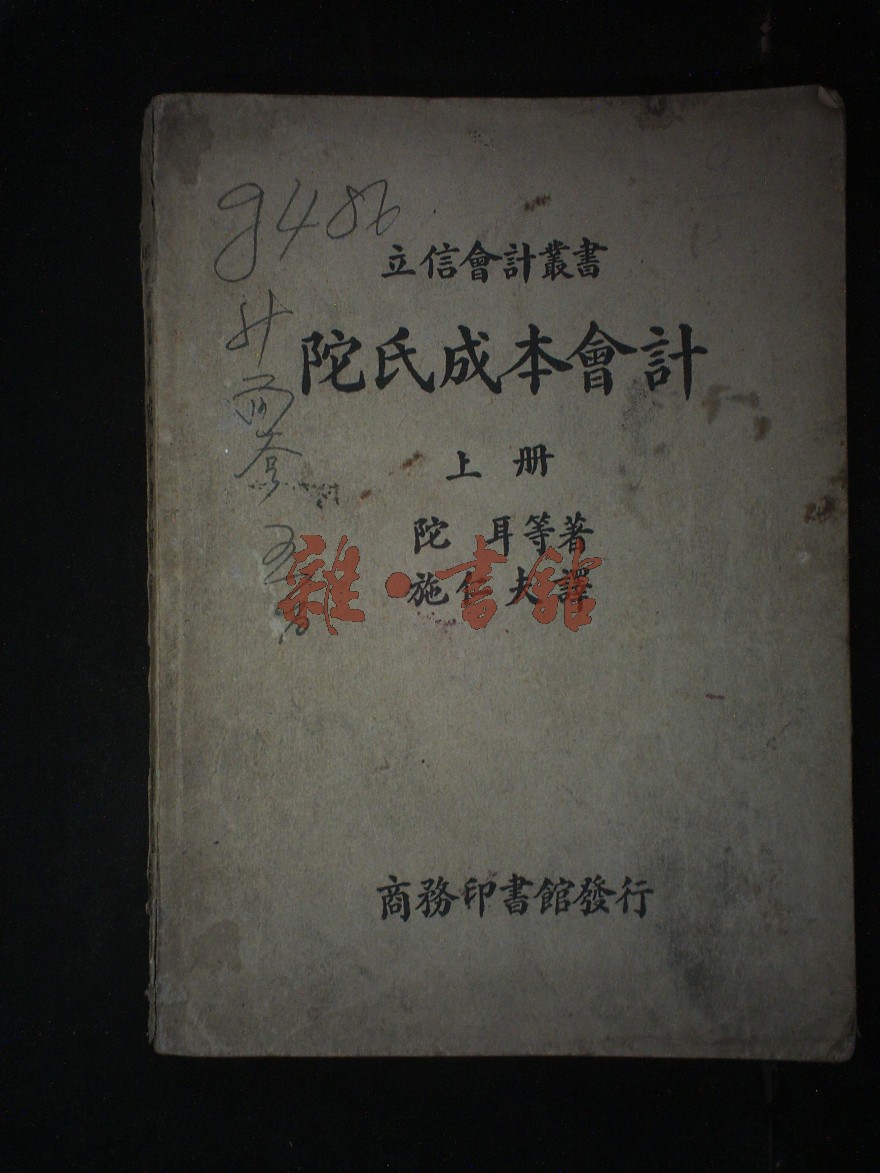 g486
立信會計叢書
陀氏成本會計
上册
陀耳等著
施仁夫譯
雜·書館
商務印書館發行